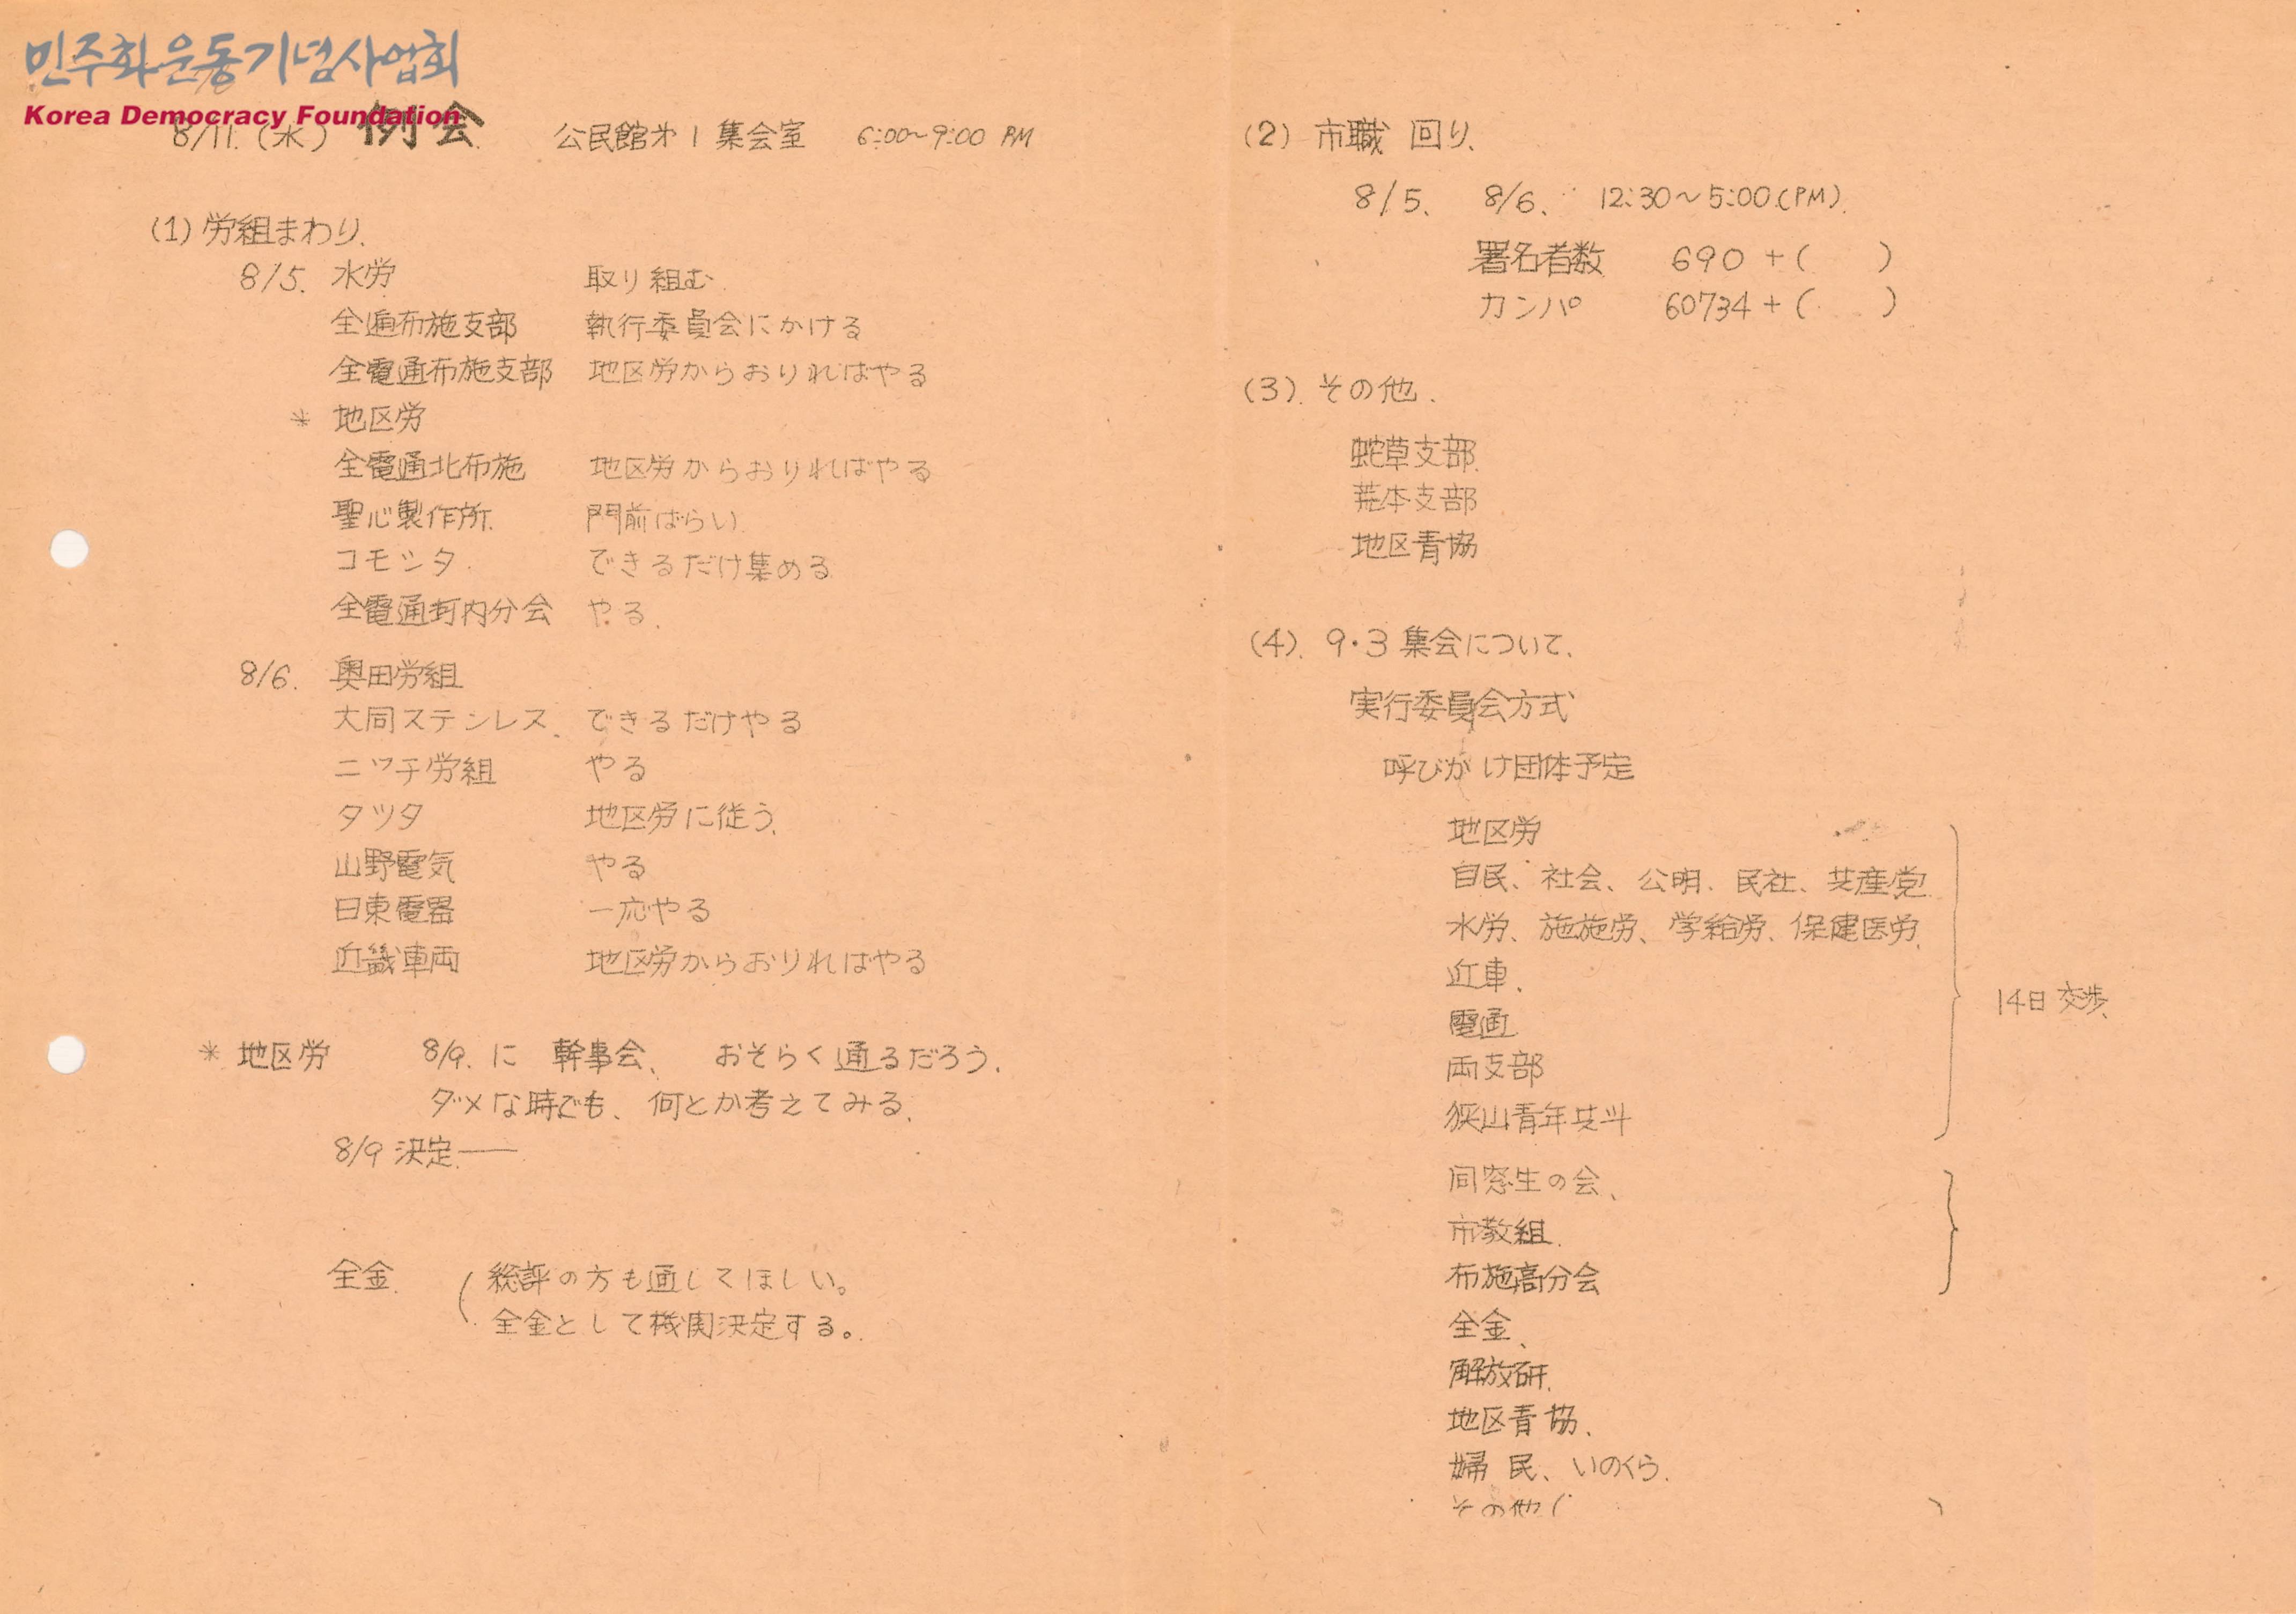 민주화운동기념사업회
Korea Democracy Foundation
8/11.(水) 例会. 公民館才1集会室 6:00~9:00 PM
(1) 労組まわり.
8/5. 水労 取り組む.
全逓布施支部 執行委員会にかける
全電通布施支部 地区労からおりればやる
* 地区労
全電通北布施 地区労からおりればやる
聖心製作所. 門前ばらい.
コモンタ.
できるだけ集める
全電通河内分会 やる.
8/6. 奥田労組
大同ステンレス、できるだけやる
ニッチ労組 やる
タツタ 地区労に従う.
山野電気 やる
日東電器 一応やる
近畿車両 地区労からおりればやる
* 地区労 8/9. に 幹事会、 おそらく通るだろう.
ダメな時でも、何とか考えてみる.
8/9 決定.——
全金. ( 総評の方も通してほしい。
全金として機関決定する。
(2) 市職 回り.
8/5. 8/6. 12:30~5:00.(PM).
署名者数 690 + ( )
カンパ 60734 + ( )
(3). その他.
蛇草支部.
荒本支部
地区青協
(4). 9・3 集会について.
実行委員会方式
呼びかけ団体予定
地区労
自民、社会、公明、民社、共産党
水労、施施労、学給労、保健医労.
近車.
電通 14日交渉.
両支部
狭山青年共斗
同窓生の会、
市教組.
布施高分会
全金、
解放研.
地区青協、
婦民、いのくら.
その他 ( )